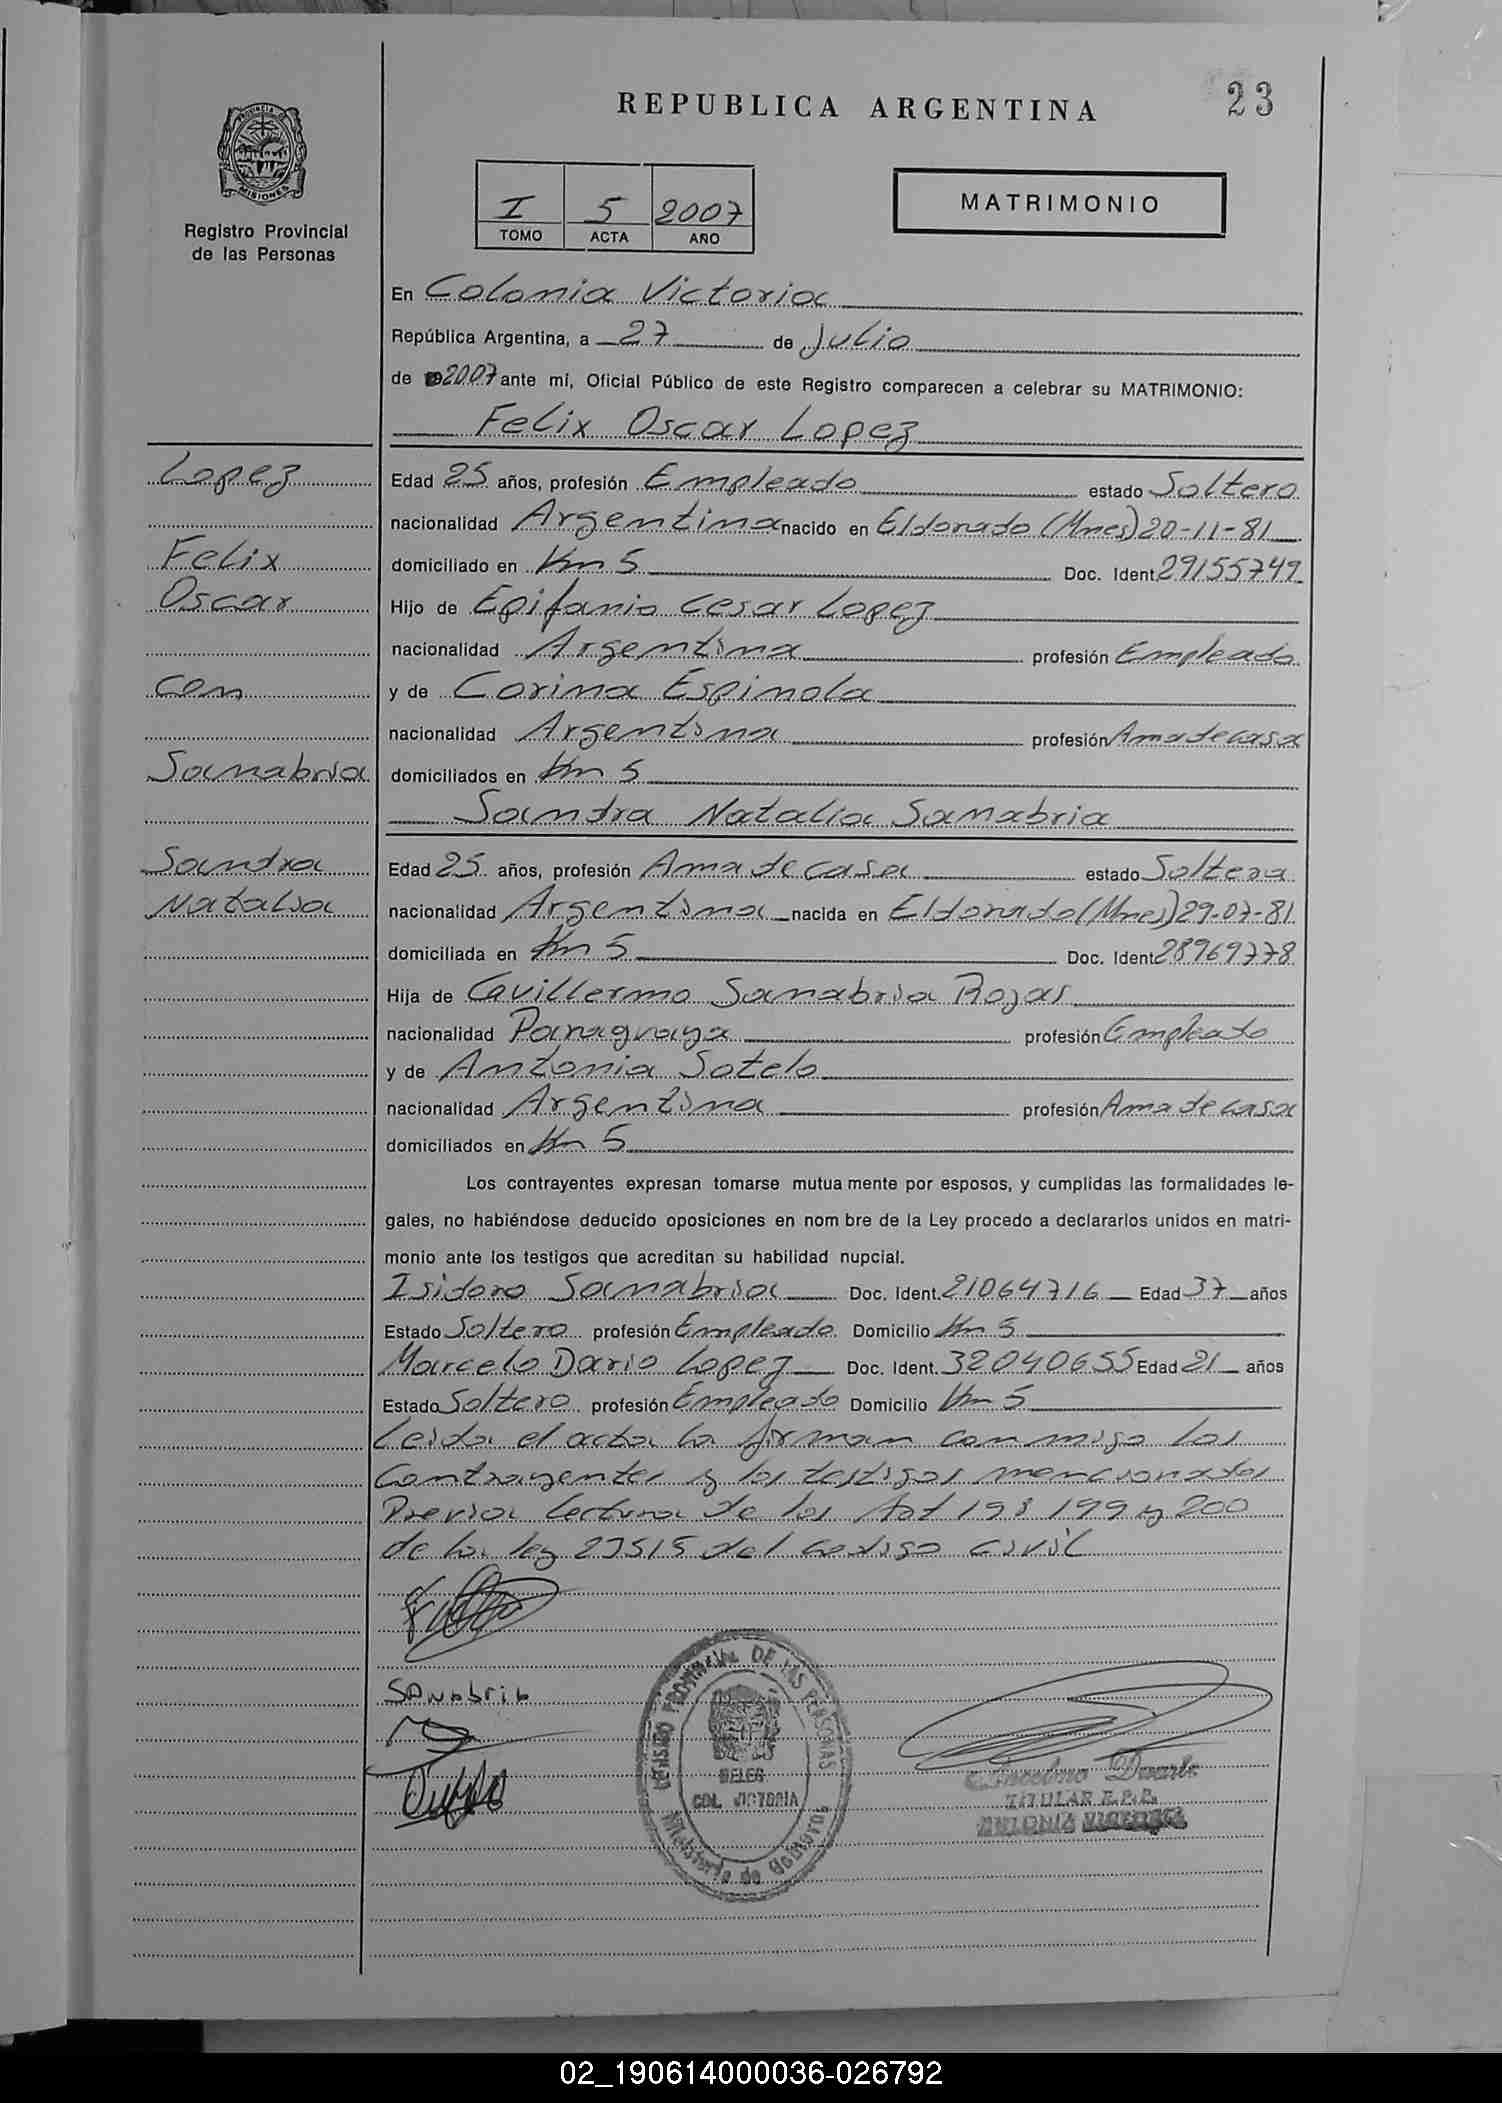 REPUBLICA ARGENTINA
23
PROVINCIA DE
MISIONES
Registro Provincial
de las Personas
I 5 2007
TOMO ACTA AÑO
MATRIMONIO
En Colonia Victoria
República Argentina, a 27 de Julio
de 2007 ante mí, Oficial Público de este Registro comparecen a celebrar su MATRIMONIO:
Felix Oscar Lopez
Lopez
Felix
Oscar
con
Sanabria
Sandra
Natalia
Edad 25 años, profesión Empleado estado Soltero
nacionalidad Argentina nacido en Eldorado (Mnes) 20-11-81
domiciliado en Km 5 Doc. Ident. 29155749
Hijo de Epifanio Cesar Lopez
nacionalidad Argentina profesión Empleado
y de Corina Espinola
nacionalidad Argentina profesión Ama de casa
domiciliados en Km 5
Sandra Natalia Sanabria
Edad 25 años, profesión Ama de casa estado Soltera
nacionalidad Argentina nacida en Eldorado (Mnes) 29-07-81
domiciliada en Km 5 Doc. Ident. 28969778
Hija de Guillermo Sanabria Rojas
nacionalidad Paraguaya profesión Empleado
y de Antonia Sotelo
nacionalidad Argentina profesión Ama de casa
domiciliados en Km 5
Los contrayentes expresan tomarse mutua mente por esposos, y cumplidas las formalidades le-
gales, no habiéndose deducido oposiciones en nom bre de la Ley procedo a declararlos unidos en matri-
monio ante los testigos que acreditan su habilidad nupcial.
Isidoro Sanabria Doc. Ident. 21064716 Edad 37 años
Estado Soltero profesión Empleado Domicilio Km 5
Marcelo Dario Lopez Doc. Ident. 32040655 Edad 21 años
Estado Soltero profesión Empleado Domicilio Km 5
Leida el acta la firman conmigo los
Contrayentes y los testigos mencionados
Previa lectura de los Art 198 199 y 200
de la ley 23515 del codigo civil
SANAbriA
REGISTRO PROVINCIAL DE LAS PERSONAS
DELEG
COL. VICTORIA
Ministerio de Gobierno
Duarte
TITULAR R.P.P.
COLONIA VICTORIA
02_190614000036-026792